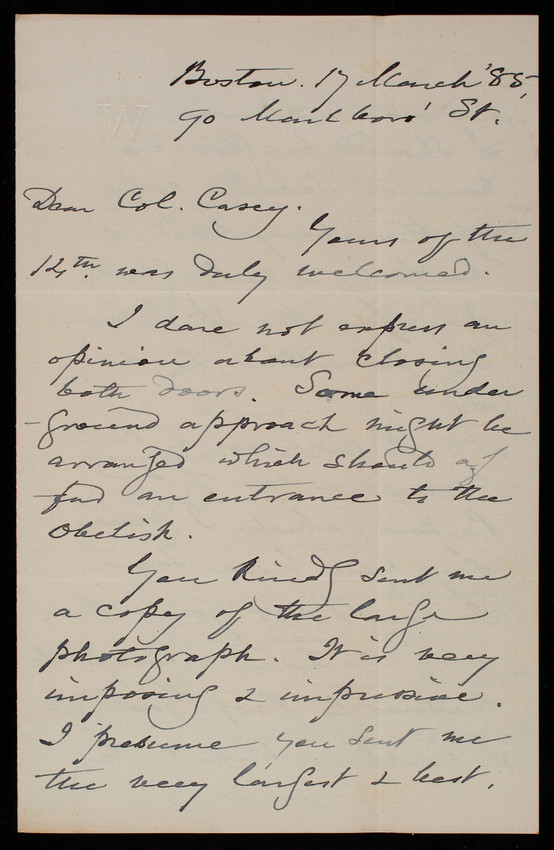 Boston. 17 March '85,
90 Marlboro' St.
W
Dear Col. Casey.
Yours of the
12th. was duly welcomed.
I dare not express an
opinion about closing
both doors. Some under
-ground approach might be
arranged which should af
ford an entrance to the
Obelisk.
You kindly sent me
a copy of the large
photograph. It is very
imposing & impressive.
I presume you sent me
the very largest & best.